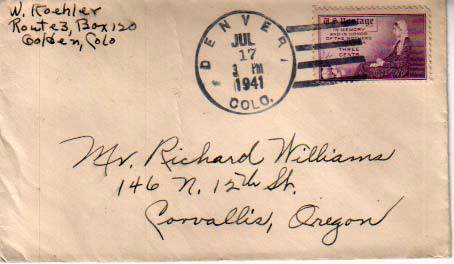 W. Koehler
Route 3, Box 120
Golden, Colo
DENVER
JUL
17
3 PM
1941
COLO.
U.S. Postage
IN MEMORY
AND IN HONOR
OF THE MOTHERS
THREE
CENTS
Mr. Richard Williams
146 N. 12th St.
Corvallis, Oregon